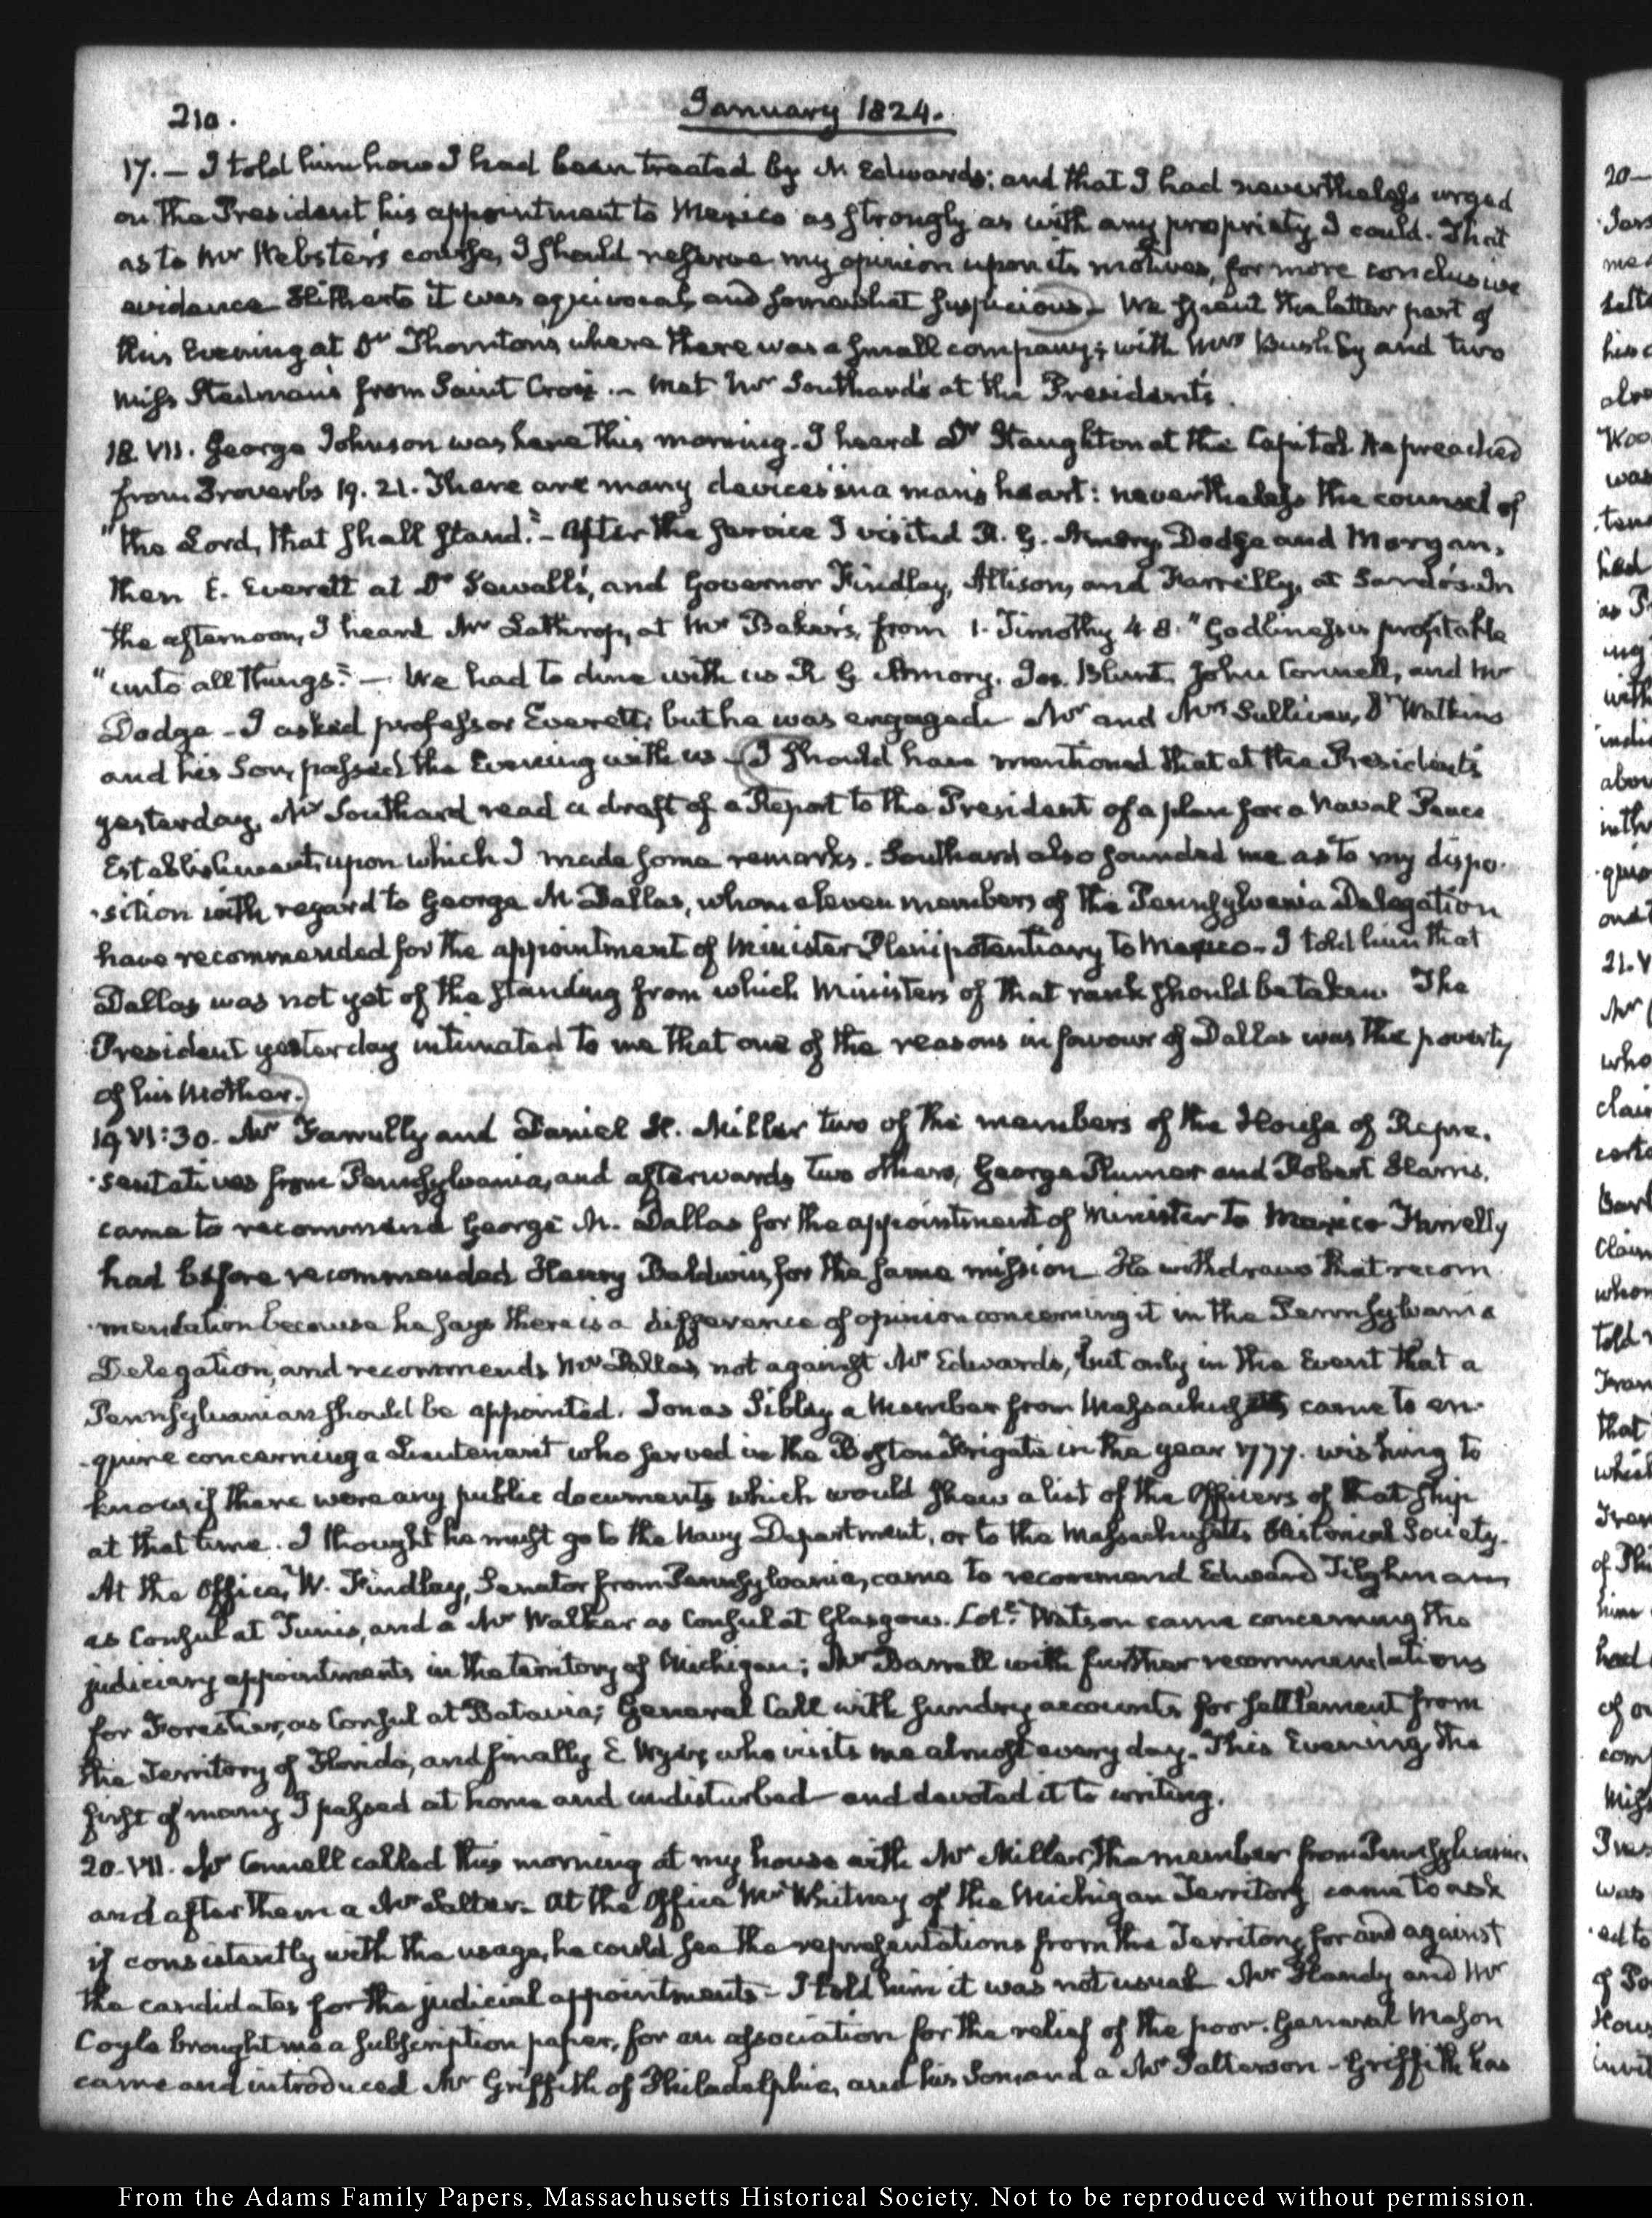 210.
January 1824.
17. — I told him how I had been treated by Mr Edwards; and that I had nevertheless urged
on the President his appointment to Mexico as strongly as with any propriety I could. That
as to Mr Webster's course, I should reserve my opinion upon its motives, for more conclusive
evidence. Hitherto it was equivocal, and somewhat suspicious — We spent the latter part of
this Evening at Dr Thornton's where there was a small company; with Mrs Bushby and two
Miss Stedman's from Saint Croix. — Met Mr Southard's at the President's.
18. VII. George Johnson was here this morning. I heard Dr Staughton at the Capitol. He preached
from Proverbs 19. 21. There are many devices in a man's heart: nevertheless the counsel of
"the Lord, that shall stand." — After the service I visited R. G. Amory, Dodge and Morgan,
then E. Everett at Dr Sewall's, and Governor Findlay, Allison, and Farrelly, at In
the afternoon, I heard Mr Lathrop, at Mr Baker's, from 1. Timothy 4. 8. "Godliness is profitable
"unto all things." — We had to dine with us R G Amory, Jos. Blunt, John Connell, and Mr
Dodge — I asked professor Everett; but he was engaged. Mr and Mrs Sullivan, Dr Watkins
and his Son, passed the Evening with us — I should have mentioned that at the President's
yesterday, Mr Southard read a draft of a Report to the President of a plan for a Naval Peace
Establishment, upon which I made some remarks. Southard also sounded me as to my dispo-
-sition with regard to George M Dallas, whom eleven members of the Pennsylvania Delegation
have recommended for the appointment of Minister Plenipotentiary to Mexico — I told him that
Dallas was not yet of the standing from which Ministers of that rank should be taken. The
President yesterday intimated to me that one of the reasons in favour of Dallas was the poverty
of his Mother.
19. VI:30. Mr Farrelly and Daniel H. Miller two of the members of the House of Repre-
-sentatives from Pennsylvania, and afterwards two others, George Plumer and Robert Harris,
came to recommend George M. Dallas for the appointment of Minister to Mexico — Farrelly
had before recommended Henry Baldwin, for the same mission — He withdraws that recom-
-mendation because he says there is a difference of opinion concerning it in the Pennsylvania
Delegation, and recommends Mr Dallas, not against Mr Edwards, but only in the Event that a
Pennsylvanian should be appointed. Jonas Sibley a Member from Massachusetts came to en-
-quire concerning a Lieutenant who served in the Boston Frigate in the year 1777. wishing to
know, if there were any public documents which would shew a list of the Officers of that Ship
at that time. I thought he must go to the Navy Department, or to the Massachusetts Historical Society.
At the Office, W. Findlay, Senator from Pennsylvania, came to recommend Edward Tilghman
as Consul at Tunis, and a Mr Walker as Consul at Glasgow. Col. Watson came concerning the
judiciary appointments in the territory of Michigan; Mr Barrell with further recommendations
for Forestier, as Consul at Batavia; General Call with sundry accounts for settlement from
the Territory of Florida, and finally E Wyer, who visits me almost every day. This Evening, the
first of many I passed at home and undisturbed — and devoted it to writing.
20. VII. Mr Connell called this morning at my house with Mr Miller, the member from Pennsylvania,
and after them a Mr Salter. At the Office Mr Whitney of the Michigan Territory came to ask
if consistently with the usage, he could see the representations from the Territory for and against
the candidates for the judicial appointments — I told him it was not usual. Mr Handy and Mr
Coyle brought me a subscription paper, for an association for the relief of the poor. General Mason
came and introduced Mr Griffith of Philadelphia, and his Son, and a Mr Patterson — Griffith has
From the Adams Family Papers, Massachusetts Historical Society. Not to be reproduced without permission.